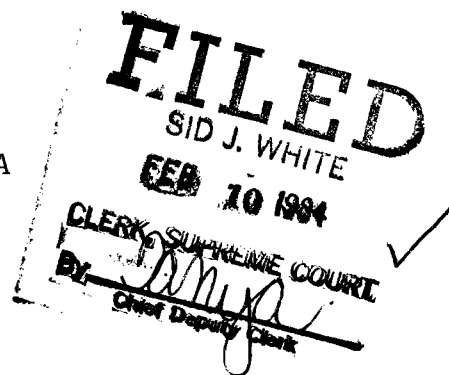 FILED
SID J. WHITE
A
FEB 10 1984
CLERK, SUPREME COURT
By Tanya
Chief Deputy Clerk